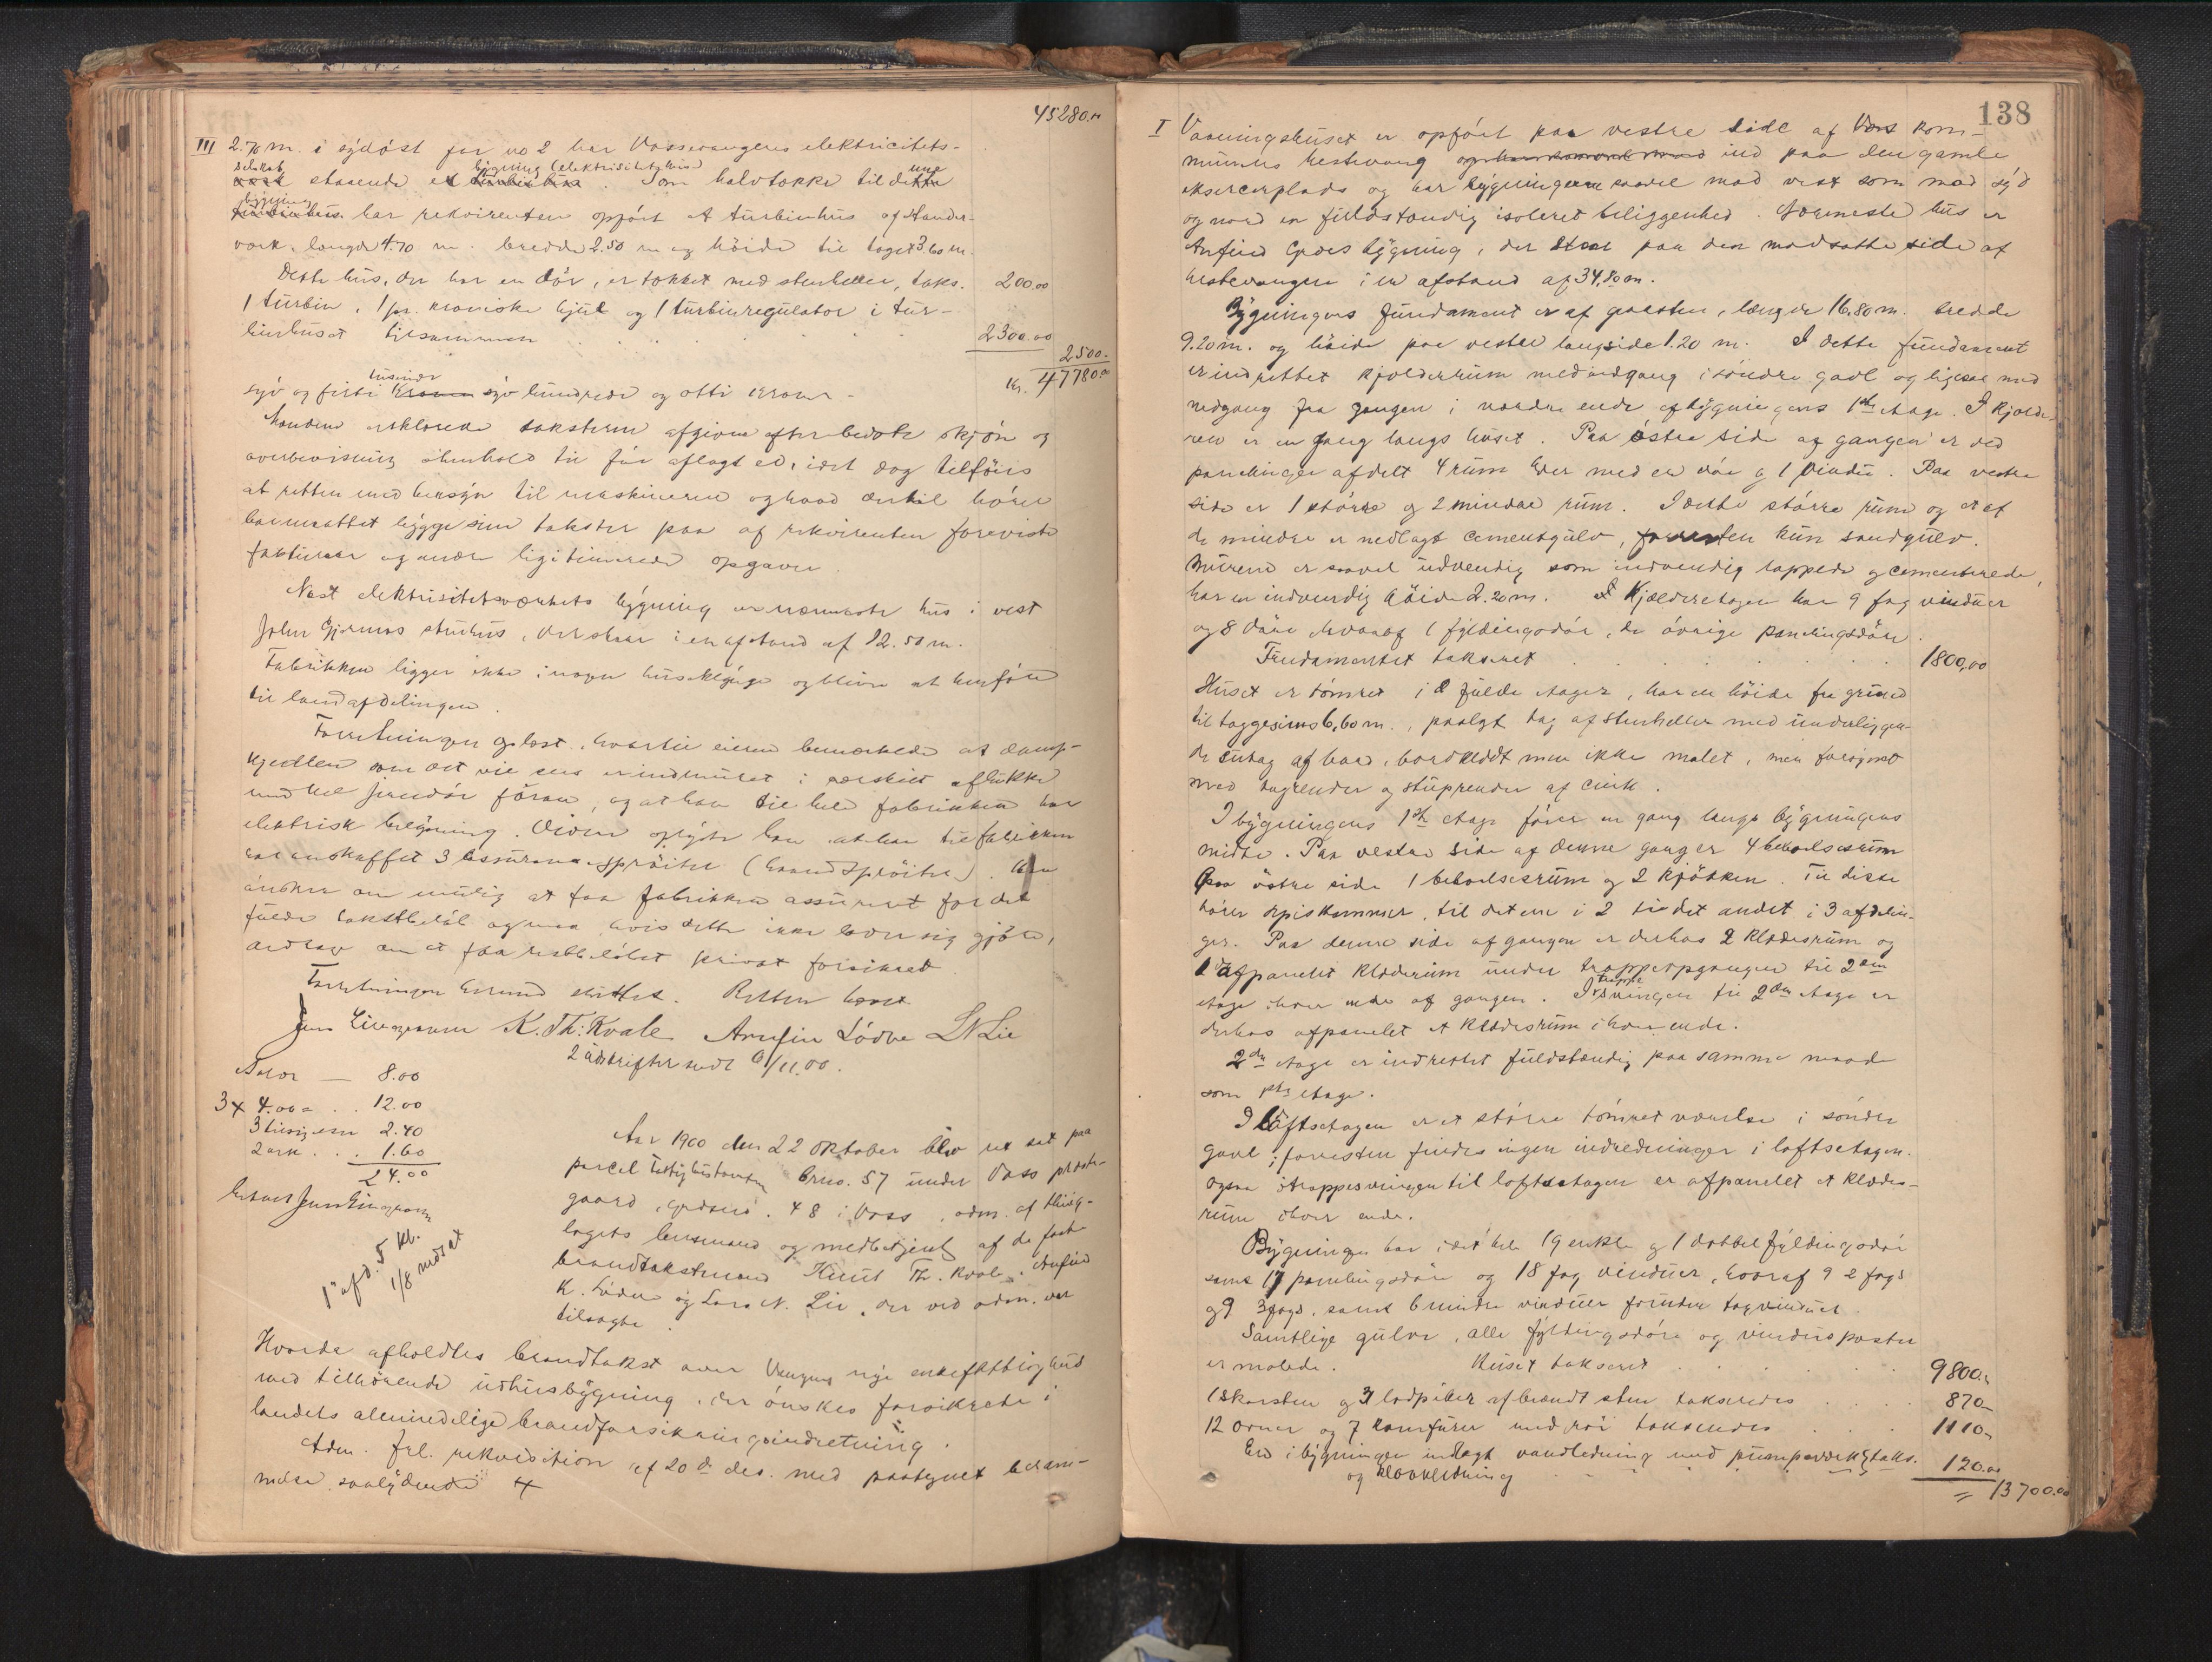 45280.00
III 2.70 m. i sydöst for no 2 har Vossevangens elektricitets-
selskab staaende et bygning (elektricitetshus). Som halvtække til denne
bygning har rekvirenten opfört et turbinhus af stander-
værk, længde 4.70 m. bredde 2.50 m og höide til taget 3.60 m.
Dette hus, der har en dör, er tækket med stenheller, taks. 200.00
1 turbin, 1 pr. koniske hjul og 1 turbinregulator i tur-
binhuset tilsammen 2300.00
2500.-
Kr. 47780.00
syv og firti tusinde syv hundrede og otti kroner -
Mændene erklærede taksterne afgivne efter bedste skjön og
overbevisning i henhold til för aflagt ed, idet dog tilföies
at retten med hensyn til maskinerne og hvad dertil hörer
har maattet bygge sine takster paa af rekvirenten foreviste
fakturaer og andre legitimerede opgaver.
Næst elektricitetsværkets bygning er nærmeste hus i vest
John Gjernes stenhus, der staar i en afstand af 12.50 m.
Fabrikken ligger ikke i nogen husklynge og bliver at henföre
til landafdelingen.
Forretningen oplæst, hvortil eieren bemærkede at damp-
kjedlen som det vil sees er indmuret i særskilt aflukke
med hel jerndör foran, og at han til hele fabrikken har
elektrisk belysning. Videre oplyste han at han til fabrikken
har anskaffet 3 assurancespröiter (haandspröiter). Han
önsker om mulig at faa fabrikken assureret for det
fulde takstbelöb og maa, hvis dette ikke lader sig gjöre,
andrage om at faa restbelöbet privat forsikret.
Forretningen herved sluttet. Retten hævet
Jens Livingerum K. Th: Kvale Arnfin Lödve L N Lie
2 udskrifter sendt 6/11.00.
Salær — 8.00
3 x 4.00 = . . 12.00
3 tilsigelser 2.40
2 ark . . . 1.60
24.00
1ste afd. 5 kl.
1/8 modsat
Aar 1900 den 22 oktober blev ret sat paa
parcel brno. 57 under Voss præste-
gaard, gardsno. 48 i Voss, adm. af thing-
lagets lensmand og medbetjent af de faste
brandtakstmænd Knut Th. Kvale, Arnfind
K. Lödve og Lars N. Lie, der ved adm. var
tilsagte.
Hvorda afholdtes brandtakst over Vangens nye enkefattighus
med tilhörende udhusbygning, der önskes forsikrede i
landets almindelige brandforsikringsindretning.
Adm. frl. rekvisition af 20 ds. med paategnet beram-
melse saalydende ¤
138
I Vaaningshuset er opfört paa vestre side af Voss kom-
munes hestevang ind paa den gamle
eksercerplads og har bygningerne saavel mod vest som mod syd
og nord en fuldstændig isoleret beliggenhed. Nærmeste hus er
Arnfind Gjerdes bygning, der staar paa den modsatte side af
hestevangen i en afstand af 34,80 m.
Bygningens fundament er af graasten, længde 16.80 m. bredde
9.20 m. og höide paa vestre langside 1.20 m. I dette fundament
er indrettet kjælderrum med indgang i söndre gavl og ligesaa med
nedgang fra gangen i nordre ende af bygningens 1ste etage. I kjælde-
ren er en gang langs huset. Paa östre side af gangen er ved
panelinger afdelt 4 rum hver med en dör og 1 vindu. Paa vestre
side er 1 större og 2 mindre rum. I dette större rum og et af
de mindre er nedlagt cementgulv, forresten kun sandgulv.
Murene er saavel udvendig som indvendig rappede og cementerede,
har en indvendig höide 2.20 m. Kjælderetagen har 9 fag vinduer
og 8 döre hvoraf 1 fyldingsdör, de övrige panelingsdöre.
Fundamentet takseret 1800,00
Huset er tömret i 2 fulde etager, har en höide fra grund
til taggesims 6,60 m., paalagt tag af stenheller med underliggen-
de sutag af bord, bordklædt men ikke malet, men forsynet
med tagrender og stuprender af zink.
I bygningens 1ste etage förer en gang langs bygningens
midte. Paa vestre side af denne gang er 4 beboelsesrum
paa östre side 1 beboelsesrum og 2 kjökken. Til disse
hörer spiskammer, til det ene i 2 til det andet i 3 afdelin-
ger. Paa denne side af gangen er derhos 2 klædesrum og
1 afpanelet klæderum under trappeopgangen til 2den
etage i hver ende af gangen. I trappesvingen til 2den etage er
derhos afpanelet et klædesrum i hver ende.
2den etage er indrettet fuldstændig paa samme maade
som 1ste etage.
I loftsetagen er et större tömret værelse i söndre
gavl; forresten findes ingen indredninger i loftsetagen.
Ogsaa i trappesvingen til loftsetagen er afpanelet et klædes-
rum i hver ende.
Bygningen har i det hele 19 enkle og 1 dobbel fyldingsdör
samt 17 panelingsdöre og 18 fag vinduer, hvoraf 9 2 fags
og 9 3 fags, samt 6 mindre vinduer foruden tagvinduer.
Samtlige gulve, alle fyldingsdöre og vinduesposter
er malede. Huset takseret 9800.-
1 skorsten og 3 lodpiber af brændt sten takseredes 870-
12 ovner og 7 komfurer med rör takseredes 1110-
En i bygningen indlagt vandledning med pumpeværk taks. 120.00
og kloakledning
= 13700.00